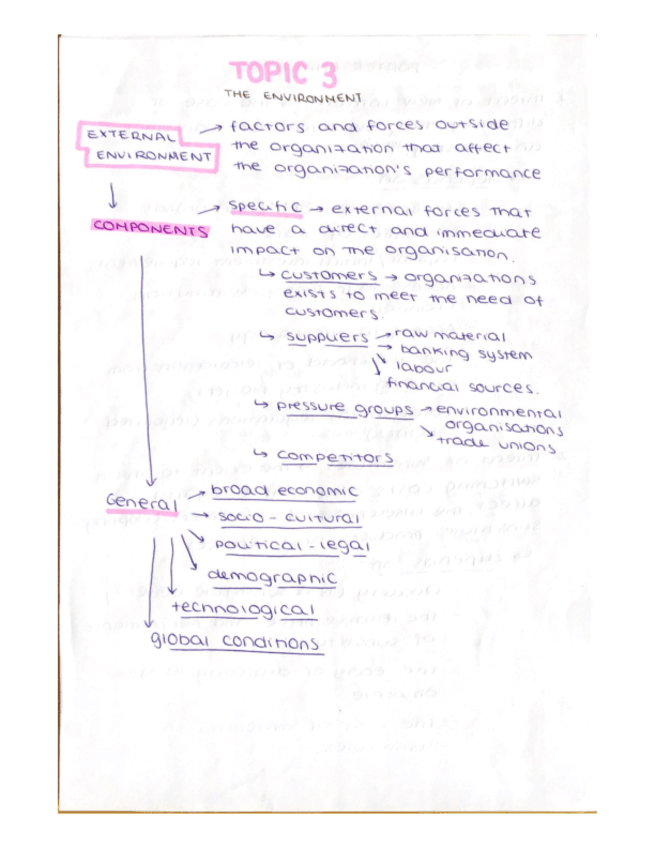 TOPIC 3
THE ENVIRONMENT
EXTERNAL ENVIRONMENT → factors and forces outside
the organization that affect
the organization's performance
↓
COMPONENTS → specific → external forces that
have a direct and immediate
impact on the organisation.
↳ customers → organizations
exists to meet the need of
customers.
↳ suppliers → raw material
→ banking system
↘ labour
↘ financial sources.
↳ pressure groups → environmental
organisations
↘ trade unions
↳ competitors
General → broad economic
→ socio - cultural
↘ political - legal
↘ demographic
↓ technological
↓ global conditions